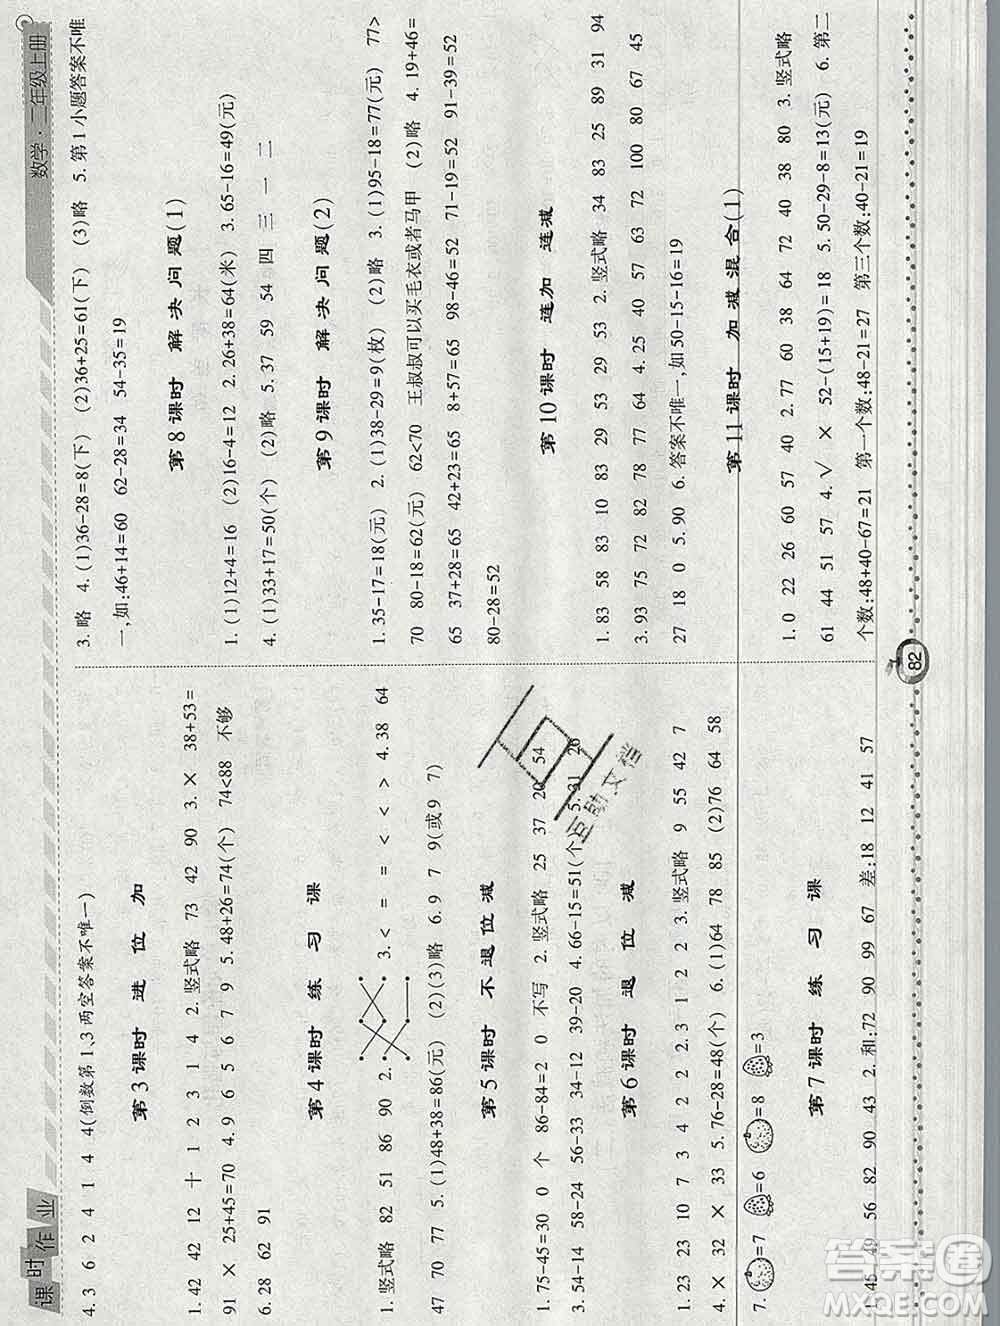 课时作业
数学·二年级上册
4. 3 6 2 4 1 4 4(倒数第1、3两空答案不唯一)
第3课时 进位加
1. 42 42 12 十 1 2 3 1 4 2. 竖式略 73 42 90 3. × 38+53=
91 × 25+45=70 4. 9 6 5 6 7 9 5. 48+26=74(个) 74<88 不够
6. 28 62 91
第4课时 练习课
1. 竖式略 82 51 86 90 2. 3. < = = < < > 4. 38 64
47 70 77 5. (1)48+38=86(元) (2)(3)略 6. 9 7 9(或9 7)
第5课时 不退位减
1. 75-45=30 0 个 86-84=2 0 不写 2. 竖式略 25 37 20 54
3. 54-14 58-24 56-33 34-12 39-20 4. 66-15=51(个) 5. 31 26
第6课时 退位减
1. 23 23 10 7 3 4 2 2. 3 1 2 2 3. 竖式略 9 55 42 7
4. × 32 × 33 5. 76-28=48(个) 6. (1)64 78 85 (2)76 64 58
7. =7 =6 =8 =3
第7课时 练习课
1. 45 49 56 82 90 43 2. 和:72 90 99 67 差:18 12 41 57
3. 略 4. (1)36-28=8(下) (2)36+25=61(下) (3)略 5. 第1小题答案不唯
一,如:46+14=60 62-28=34 54-35=19
第8课时 解决问题(1)
1. (1)12+4=16 (2)16-4=12 2. 26+38=64(米) 3. 65-16=49(元)
4. (1)33+17=50(个) (2)略 5. 37 59 54 四 三 一 二
第9课时 解决问题(2)
1. 35-17=18(元) 2. (1)38-29=9(枚) (2)略 3. (1)95-18=77(元) 77>
70 80-18=62(元) 62<70 王叔叔可以买毛衣或者马甲 (2)略 4. 19+46=
65 37+28=65 42+23=65 8+57=65 98-46=52 71-19=52 91-39=52
80-28=52
第10课时 连加 连减
1. 83 58 83 10 83 29 53 29 53 2. 竖式略 34 83 25 89 31 94
3. 93 75 72 82 78 77 64 4. 25 40 57 63 72 100 80 67 45
27 18 0 5. 90 6. 答案不唯一,如50-15-16=19
第11课时 加减混合(1)
1. 0 22 26 60 57 40 2. 77 60 38 64 72 40 38 80 3. 竖式略
61 44 51 57 4. √ × 52-(15+19)=18 5. 50-29-8=13(元) 6. 第二
个数:48+40-67=21 第一个数:48-21=27 第三个数:40-21=19
82
百勋文档
答案圈
MXQE.COM